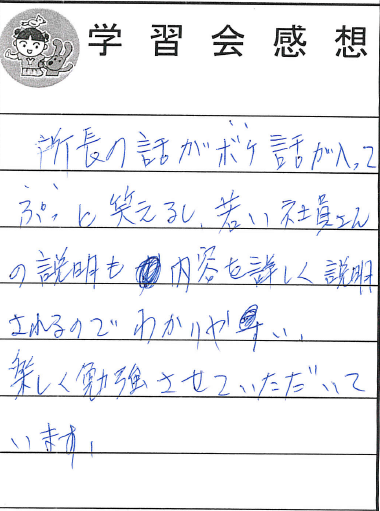 学習会感想
所長の話がボケ話が入って
ぷっと笑えるし、若い社員さん
の説明も内容を詳しく説明
されるのでわかりやすい、
楽しく勉強させていただいて
います。